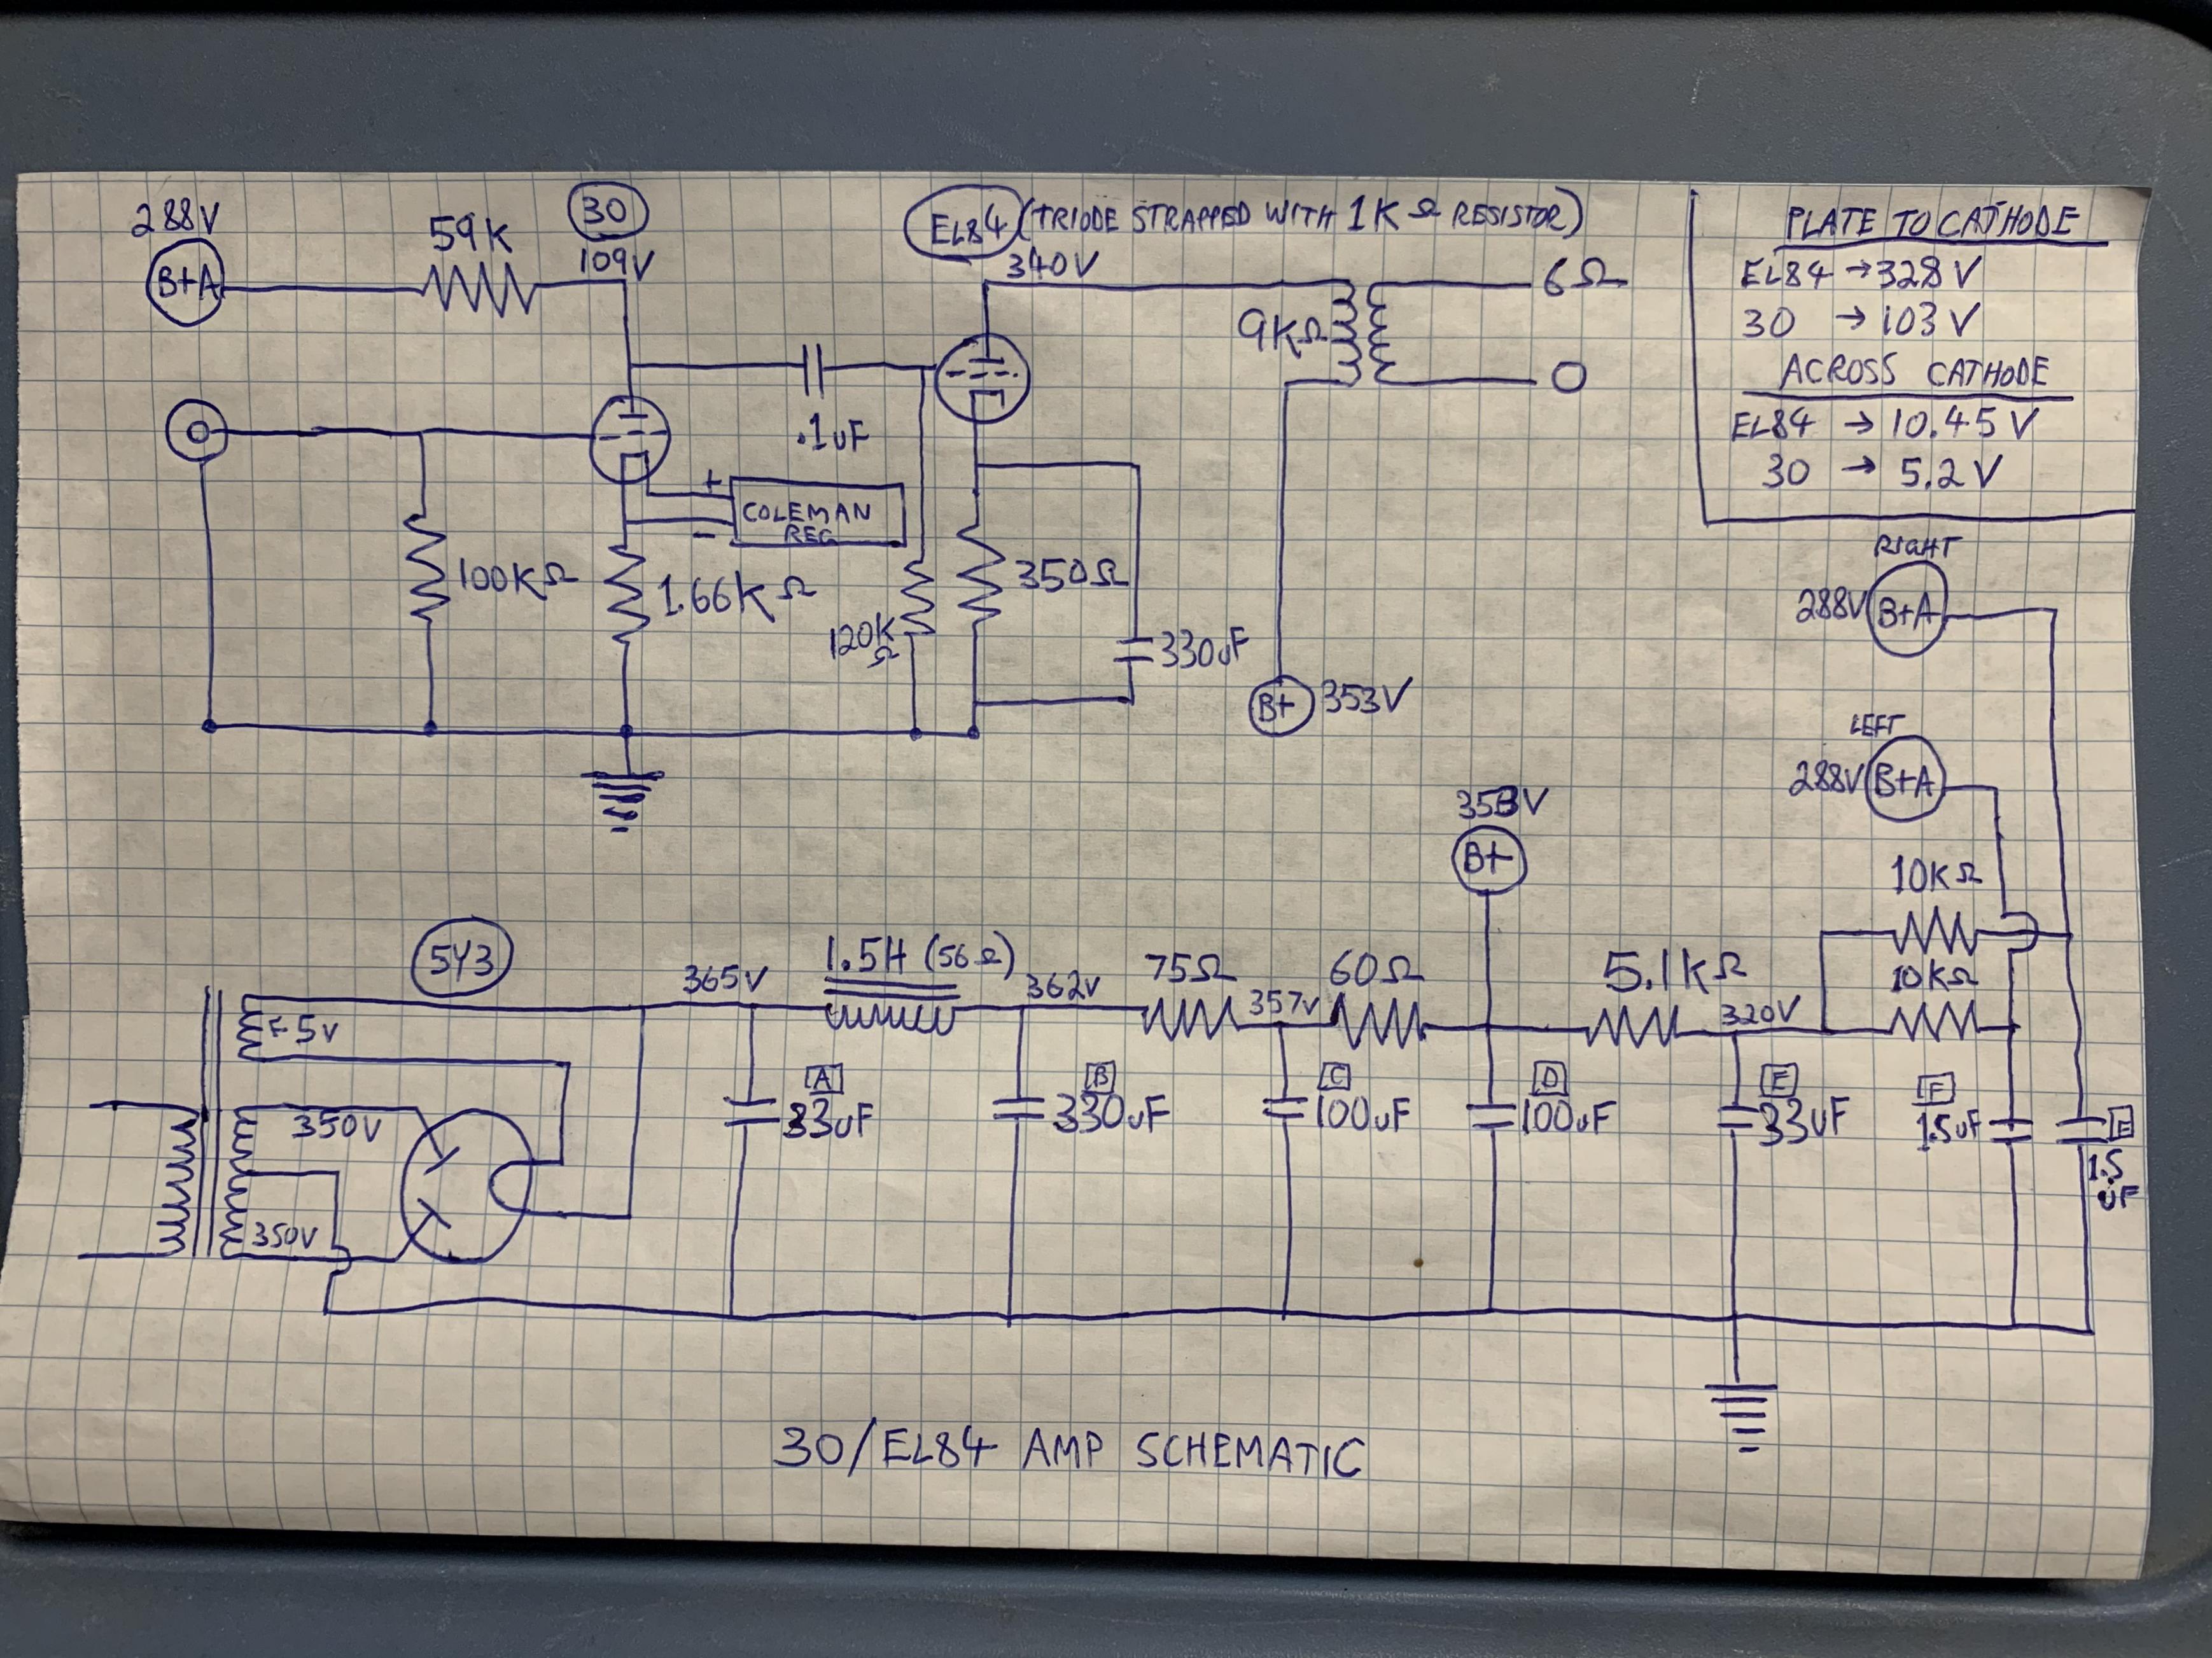 288V
B+A
59K
30
109V
EL84 (TRIODE STRAPPED WITH 1KΩ RESISTOR)
340V
6Ω
9KΩ
O
.1uF
+
COLEMAN
REG
-
100KΩ
1.66KΩ
120K
Ω
350Ω
330uF
B+ 353V
PLATE TO CATHODE
EL84 → 328V
30 → 103V
ACROSS CATHODE
EL84 → 10.45V
30 → 5.2V
RIGHT
288V B+A
LEFT
288V B+A
353V
B+
10KΩ
10KΩ
5Y3
365V
1.5H (56Ω)
362V
75Ω
357V
60Ω
5.1KΩ
320V
F 5V
350V
350V
A
33uF
B
330uF
C
100uF
D
100uF
E
33uF
F
1.5uF
1.5
uF
30/EL84 AMP SCHEMATIC